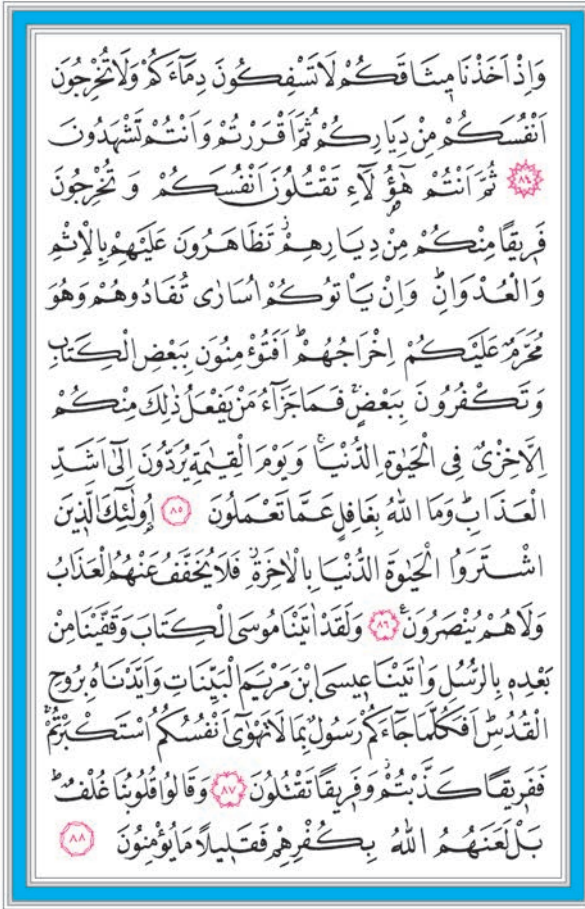 وَاِذْ اَخَذْنَا مِيثَاقَكُمْ لَا تَسْفِكُونَ دِمَٓاءَكُمْ وَلَا تُخْرِجُونَ
اَنْفُسَكُمْ مِنْ دِيَارِكُمْ ثُمَّ اَقْرَرْتُمْ وَاَنْتُمْ تَشْهَدُونَ
﴿٨٤﴾ ثُمَّ اَنْتُمْ هٰٓؤُ۬لَٓاءِ تَقْتُلُونَ اَنْفُسَكُمْ وَتُخْرِجُونَ
فَرِيقًا مِنْكُمْ مِنْ دِيَارِهِمْۘ تَظَاهَرُونَ عَلَيْهِمْ بِالْاِثْمِ
وَالْعُدْوَانِۜ وَاِنْ يَأْتُوكُمْ اُسَارٰى تُفَادُوهُمْ وَهُوَ
مُحَرَّمٌ عَلَيْكُمْ اِخْرَاجُهُمْۜ اَفَتُؤْمِنُونَ بِبَعْضِ الْكِتَابِ
وَتَكْفُرُونَ بِبَعْضٍۚ فَمَا جَزَٓاءُ مَنْ يَفْعَلُ ذٰلِكَ مِنْكُمْ
اِلَّا خِزْيٌ فِي الْحَيٰوةِ الدُّنْيَاۚ وَيَوْمَ الْقِيٰمَةِ يُرَدُّونَ اِلٰٓى اَشَدِّ
الْعَذَابِۜ وَمَا اللّٰهُ بِغَافِلٍ عَمَّا تَعْمَلُونَ ﴿٨٥﴾ اُو۬لٰٓئِكَ الَّذِينَ
اشْتَرَوُا الْحَيٰوةَ الدُّنْيَا بِالْاٰخِرَةِۘ فَلَا يُخَفَّفُ عَنْهُمُ الْعَذَابُ
وَلَا هُمْ يُنْصَرُونَ۟ ﴿٨٦﴾ وَلَقَدْ اٰتَيْنَا مُوسَى الْكِتَابَ وَقَفَّيْنَا مِنْ
بَعْدِهٖ بِالرُّسُلِ وَاٰتَيْنَا عِيسَى ابْنَ مَرْيَمَ الْبَيِّنَاتِ وَاَيَّدْنَاهُ بِرُوحِ
الْقُدُسِۜ اَفَكُلَّمَا جَٓاءَكُمْ رَسُولٌ بِمَا لَا تَهْوٰٓى اَنْفُسُكُمُ اسْتَكْبَرْتُمْۚ
فَفَرِيقًا كَذَّبْتُمْۘ وَفَرِيقًا تَقْتُلُونَ ﴿٨٧﴾ وَقَالُوا قُلُوبُنَا غُلْفٌۜ
بَلْ لَعَنَهُمُ اللّٰهُ بِكُفْرِهِمْ فَقَلِيلًا مَا يُؤْمِنُونَ ﴿٨٨﴾